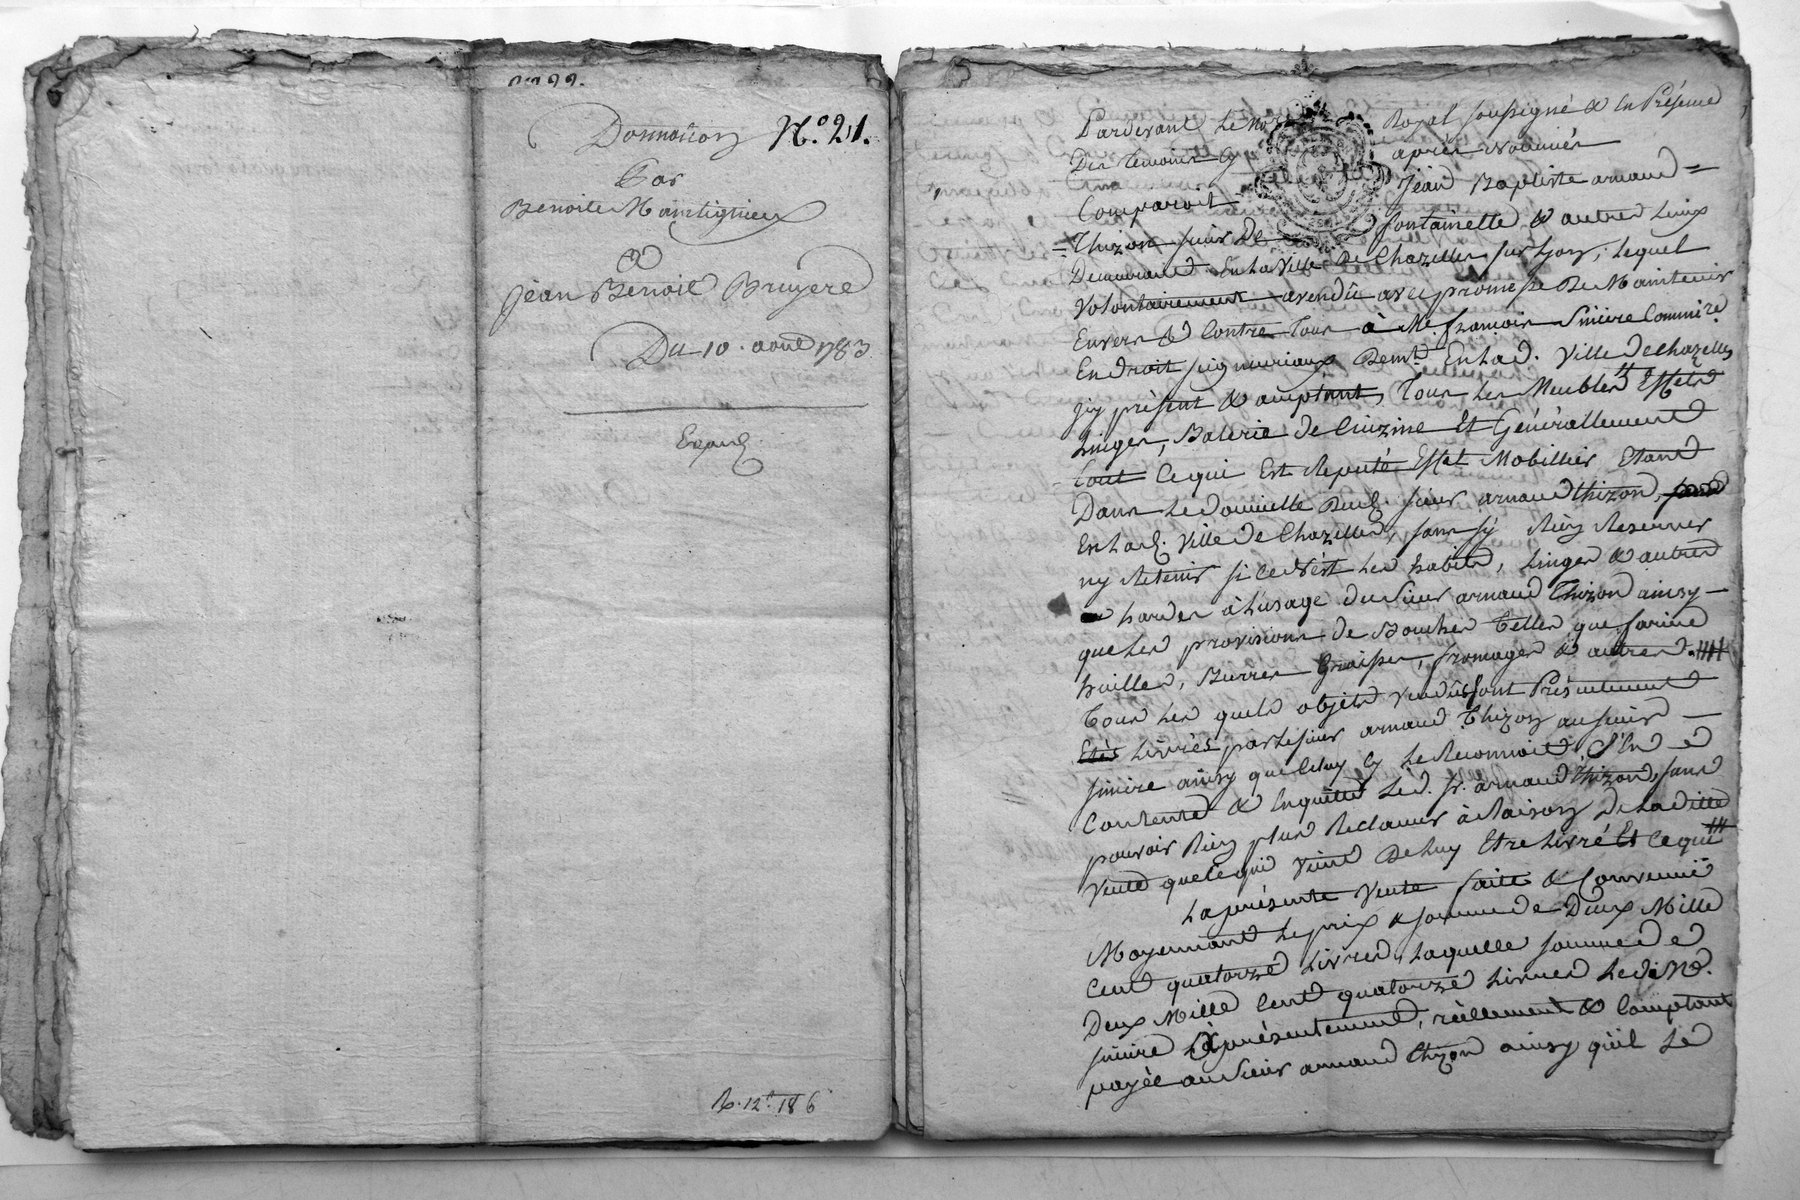 Donnation N.º 21.
Par
Benoite Martignieux
A
Jean Benoit Bruyere
Du 10. aout 1783
Exp.
R. 12ᵗ 18 6
Pardevant le no.re Royal soussigné & en Présence
Des temoins cy après nommés
Comparoit Jean Baptiste arnaud =
= Thizon sieur De fontainette & autres Lieux
Demeurant En La Ville De Chazelles sur Lyon, lequel
Volontairement avendû avec promesse De Maintenir
Envers & Contre tous à Me. françois Simire Commire.
En droit seigneuriaux Demt. En Lad. Ville de chazelles
Icy présent & acceptant, Tous les Meubles Effets
Linges, Baterie de Cuizine Et Générallement
tout Ce qui Est Reputé Effet Mobillier Etant
Dans le domicille Dud. sieur arnaud thizon,
En Lad. Ville de Chazelles, sans sy Rien Reserver
ny Retenir si Ce N'est Les habits, Linges & autres
hardes à L'usage du sieur arnaud Thizon ainsy
que Les provisions de Bouches telles que farine
huilles, Burres Graisses, fromages & autres
Tous Les quels objets vendûs sont Présentement
Etés Livrés par le sieur arnaud Thizon au sieur
simire ainsy que Celuy Cy Le Reconnoit, S'En
Contente & En quitte Led. Sr. arnaud Thizon, sans
pouvoir Rien plus Reclamer à Raison De La ditte
Vente que Ce qui Vient De Luy Etre Livré Et Ce qui
La présente Vente faite & Convenuë
Moyennant Le prix & somme de Deux Mille
Cent quatorze Livres, Laquelle somme de
Deux Mille Cent quatorze Livres Ledit Me.
simire à présentement, réellement & Comptant
payée au sieur arnaud thizon ainsy qu'il Le